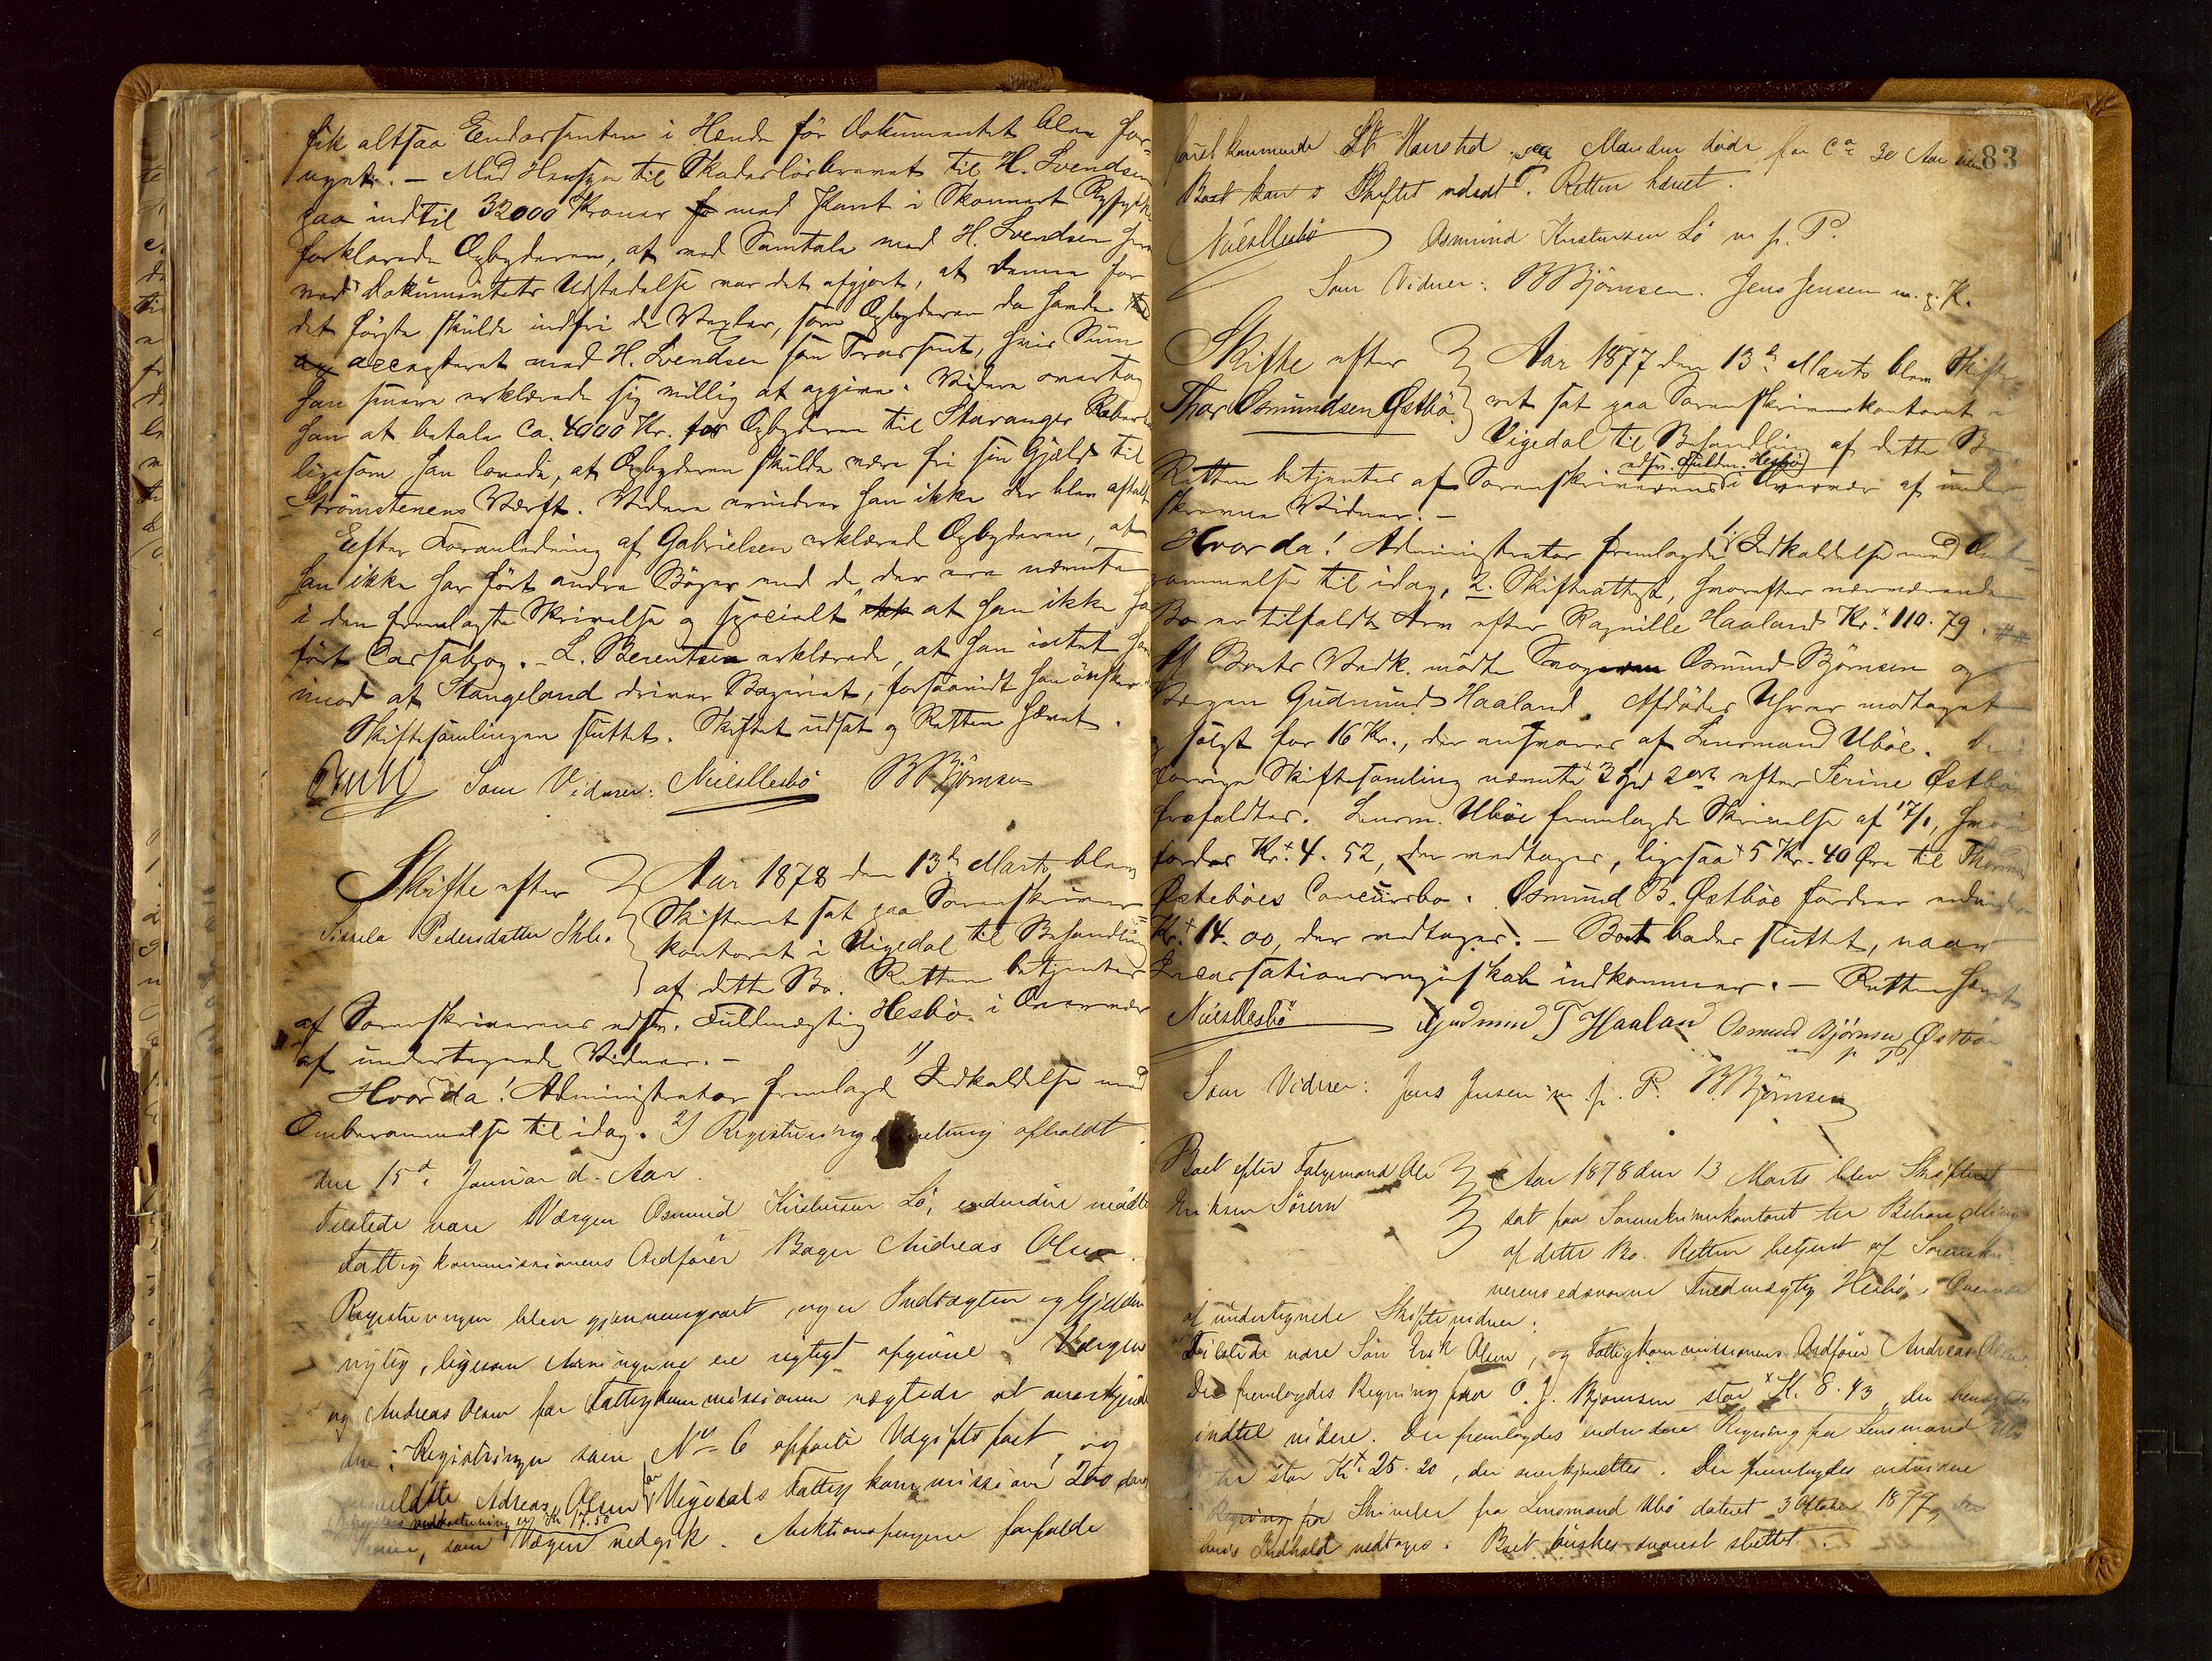 fik altsaa Endossenten i Hænde før Dokumentet blev for-
nyet. – Med Hensyn til Skadesløsbrevet til H. Svendsen
paa indtil 32000 Kroner med Pant i Skonnert
forklarede Opbyderen, at ved Samtale med H. Svendsen
ved Dokumentets Udstedelse var det afgjort, at denne for
det første skulde indfri de Vexler, som Opbyderen da havde
accepteret med H. Svendsen som Trassent, hvis Sum
han senere erklærede sig villig at opgive. Videre overtog
han at betale ca. 4000 Kr. for Opbyderen til Stavanger
ligesom han lovede, at Opbyderen skulde være fri sin Gjæld til
Strømstenens Værft. Videre erindrer han ikke der blev aftalt
Efter Foranledning af Gabrielsen erklærede Opbyderen, at
han ikke har ført andre Bøger end de, der ere nævnte
i den fremlagte Skrivelse og specielt at han ikke har
ført Cassabog. – L. Berentsen erklærede, at han intet har
imod at Stangeland driver Bageriet, forsaavidt han ønsker
Skiftesamlingen sluttet. Skiftet udsat og Retten hævet.
Som Vidner: Bjørnsen
Skifte efter Aar 1878 den 13de Marts blev
Sissela Pedersdatter Skifteret sat paa Sorenskriver
kontoret i Vigedal til Behandling
af dette Bo. Retten betjentes
af Sorenskriverens edsv. Fuldmægtig Hesbø i Overvær
af undertegnede Vidner. –
Hvorda! Administrator fremlagde 1) Indkaldelse med
Omberammelse til idag. 2) Registrering afholdt
den 15de Januar d. Aar.
Tilstede vare Værgen Osmund Kristensen Lø, endvidere mødte
Fattigkommissionens Ordfører Bager Andreas Olsen.
Registreringen blev gjennemgaaet, og er Indtægten og Gjælden
rigtig, ligesom Arvingerne ere rigtigt opgivne. Værgen
og Andreas Olsen for Fattigkommissionen nægtede at anerkjende
den i Registreringen som No 6 opførte Udgiftspost, og
Andreas Olsen for Vigedals Fattigkommission 200
Kr. 17.50
som Værgen vedgik. Auktionspengene forfaldt
83
Manden døde for ca 30 Aar siden
Boet kan Skiftet udsat. Retten hævet.
Osmund Kristensen Lø m. p. P.
Som Vidner: Bjørnsen. Jens Jensen m. p. P.
Skifte efter Aar 1877 den 13de Marts blev Skifte-
Thor Osmundsen Østbø. ret sat paa Sorenskriverkontoret i
Vigedal til Behandling af dette Bo.
edsv. Fuldm. Hesbø
Retten betjentes af Sorenskriverens i Overvær af under-
skrevne Vidner. –
Hvorda! Administrator fremlagde 1. Indkaldelse med Omb-
rammelse til idag, 2. Skifteattest, hvorefter nærværende
Bo er tilfaldt Arv efter Ragnille Haaland Kr. 110.79.
Af Boets Vedk. mødte Osmund Bjørnsen og
Værgen Gudmund Haaland. Afdødes Uhr er modtaget
og solgt for 16 Kr., der ansvares af Lensmand Ubøe.
forrige Skiftesamling nævnte efter Serine Østbø
frafaldtes. Lensm. Ubøe fremlagde Skrivelse af 17/1, hvori
fordres Kr. 4.52, der vedtages, ligesaa 5 Kr. 40 Øre til
Østebøes Concursbo. Osmund B. Østbøe fordrer
Kr. 14.00, der vedtages. – Boet bedes sluttet, naar
Incassationsregnskab indkommer. – Retten hævet
Gudmund T Haaland Osmund Bjørnsen Østbø
m p P
Som Vidner: Jens Jensen m. p. P. Bjørnsen
Boet efter Aar 1878 den 13 Marts blev Skifteret
Eriksen sat paa Sorenskriverkontoret til Behandling
af dette Bo. Retten betjent af Sorenskri-
verens edsvorne Fuldmægtig Hesbø, i Overvær
af undertegnede Skiftevidner:
Tilstede vare Søn Erik Olsen, og Fattigkommissionens Ordfører Andreas Olsen.
Der fremlagdes Regning fra O. J. Bjørnsen stor K. 8.43, der
indtil videre. Der fremlagdes endvidere Regning fra Lensmand
stor Kr 25.20, der anerkjendtes. Der fremlagdes endvidere
Skrivelse fra Lensmand Ubø dateret 3 Oktober 1877,
hvis Indhold vedtages. Boet ønskes snarest sluttet.